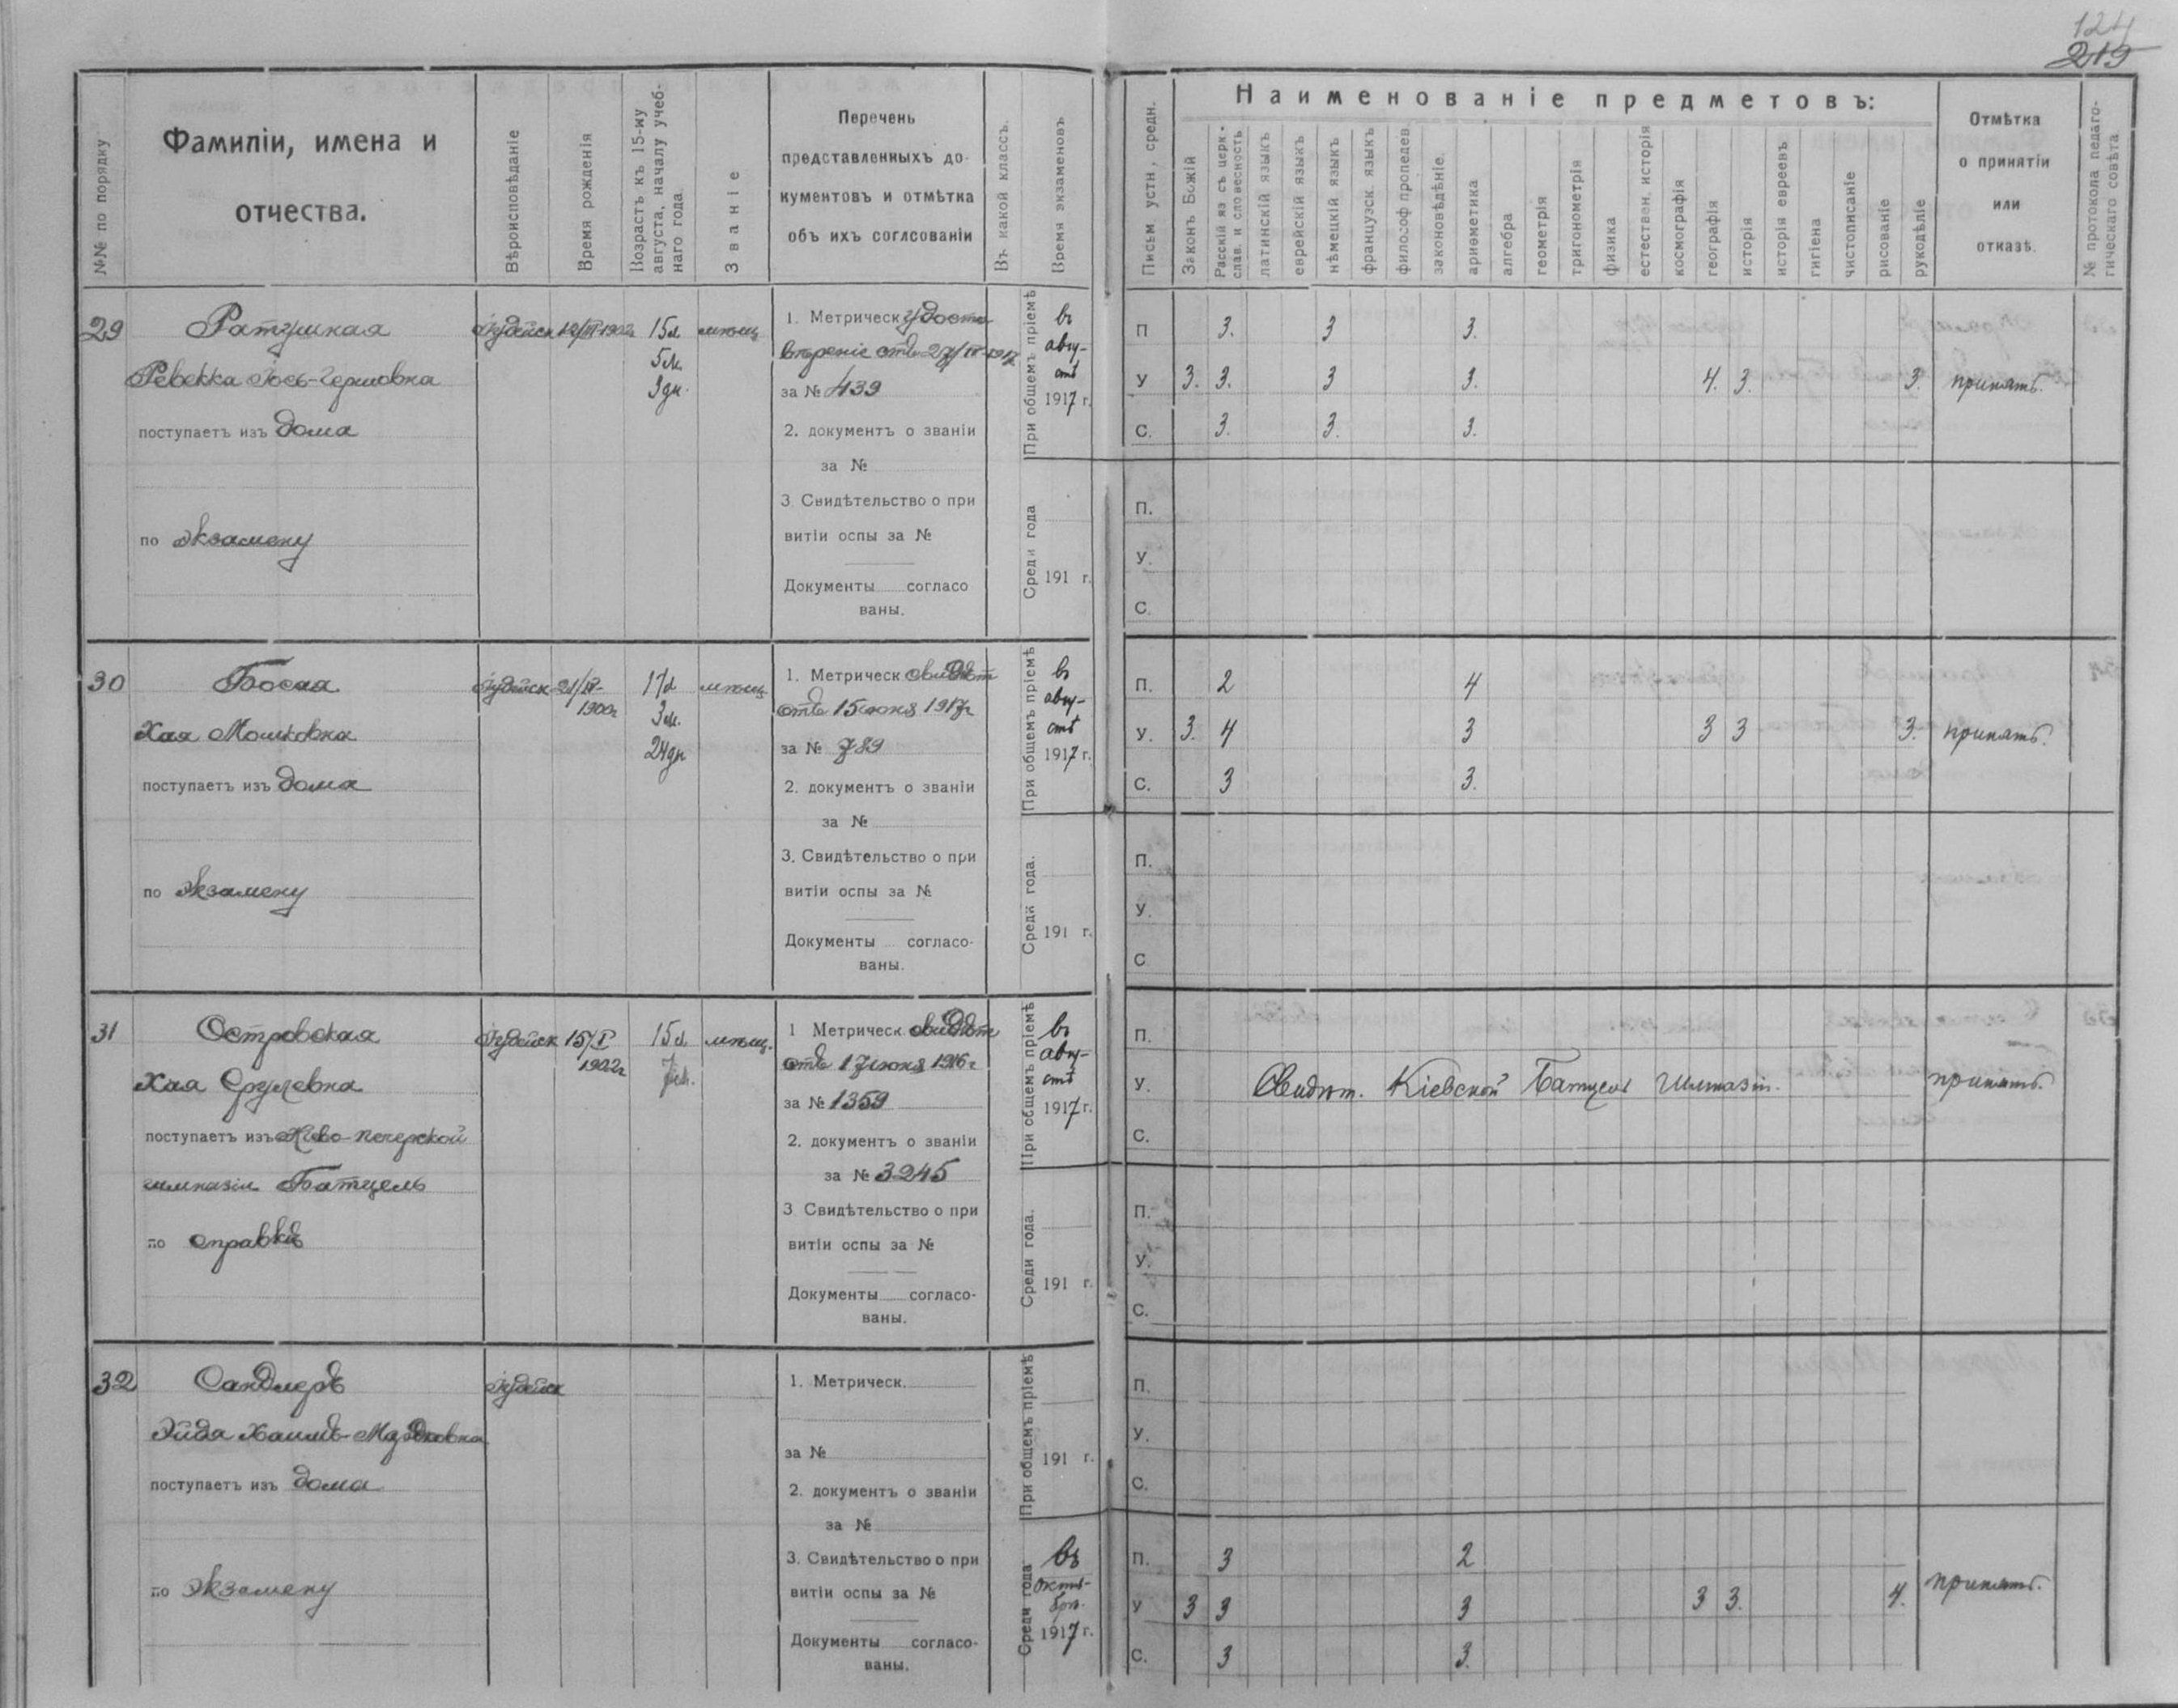 124
219
№№ по порядку
Фамиліи, имена и
отчества.
Вѣроисповѣданіе
Время рожденія
Возрастъ къ 15-му
августа, началу учеб-
наго года.
Званіе
Перечень
представленныхъ до-
кументовъ и отмѣтка
объ ихъ согласованіи
Въ какой классъ.
Время экзаменовъ
Письм устн, средн.
Наименованіе предметовъ:
Законъ Божій
Расскій яз съ церк-
слав. и словесность
латинскій языкъ
еврейскій языкъ
нѣмецкій языкъ
французск языкъ
философ пропедев
законовѣдѣніе.
ариөметика
алгебра
геометрія
тригонометрія
физика
естествен. исторія
космографія
географія
исторія
исторія евреевъ
гигіена
чистописаніе
рисованіе
рукодѣліе
Отмѣтка
о принятіи
или
отказѣ.
№ протокола педаго-
гическаго совѣта
29
Ратушная
Іудейск
15л
5м.
3дн.
мѣщ
Ревекка Іось-Гершовна
поступаетъ изъ дома
по экзамену
1. Метрическ удосто
вѣреніе отъ
за № 439
2. документъ о званіи
за №
3. Свидѣтельство о при
витіи оспы за №
Документы согласо
ваны.
При общемъ пріемѣ
въ
авгу-
стѣ
1917 г.
Среди года
191 г.
П 3. 3 3.
У 3. 3. 3 3. 4. 3. 3. принять.
С. 3. 3. 3.
П.
У.
С.
30
Босая
Іудейск 21/IV-
1900г
17л
3м.
24дн
мѣщ.
Хая Мошковна
поступаетъ изъ дома
по экзамену
1. Метрическ свидѣт
отъ 15 іюня 1917г
за № 789
2. документъ о званіи
за №
3. Свидѣтельство о при
витіи оспы за №
Документы согласо-
ваны.
При общемъ пріемѣ
въ
авгу-
стѣ
1917 г.
Среди года.
191 г.
П. 2 4
У. 3. 4 3 3 3 3. принять.
С. 3 3.
П.
У.
С
31
Островская
Іудейск 15/I
1902г
15л
7м.
мѣщ.
Хая Срулевна
поступаетъ изъ Кіево-печерской
гимназіи Батцель
по справкѣ
1 Метрическ свидѣт
отъ 17 іюня 1916г
за № 1359
2. документъ о званіи
за № 3245
3 Свидѣтельство о при
витіи оспы за №
Документы согласо-
ваны.
При общемъ пріемѣ
въ
авгу-
стѣ
1917 г.
Среди года.
191 г.
П.
У. Свидѣт. Кіевской Батцель Гимназіи. принять.
С.
П.
У.
С.
32
Сандлеръ
Іудейск
Эйдя Хаимъ-Мордковна
поступаетъ изъ дома
по экзамену
1. Метрическ.
за №
2. документъ о званіи
за №
3. Свидѣтельство о при
витіи оспы за №
Документы согласо-
ваны.
При общемъ пріемѣ
191 г.
Среди года
въ
октя-
брѣ
1917 г.
П.
У.
С.
П. 3 2
У 3 3 3 3 3. 4. принять.
С. 3 3.